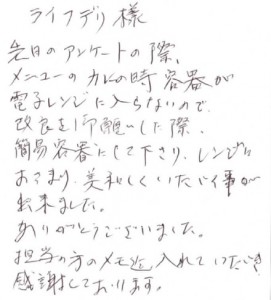 ライフデリ様
先日のアンケートの際、
メニューのカレの時容器が
電子レンジに入らないので、
改良を御願いした際、
簡易容器にして下さり、レンジに
おさまり、美味しくいただく事が
出来ました。
ありがとうございました。
担当の方のメモ迄入れていただき
感謝しております。